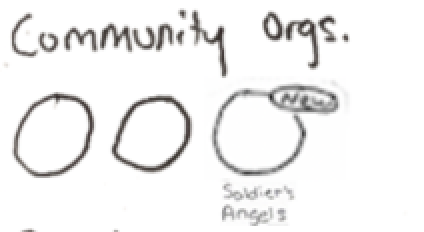 Community Orgs.
New
Soldier's
Angels